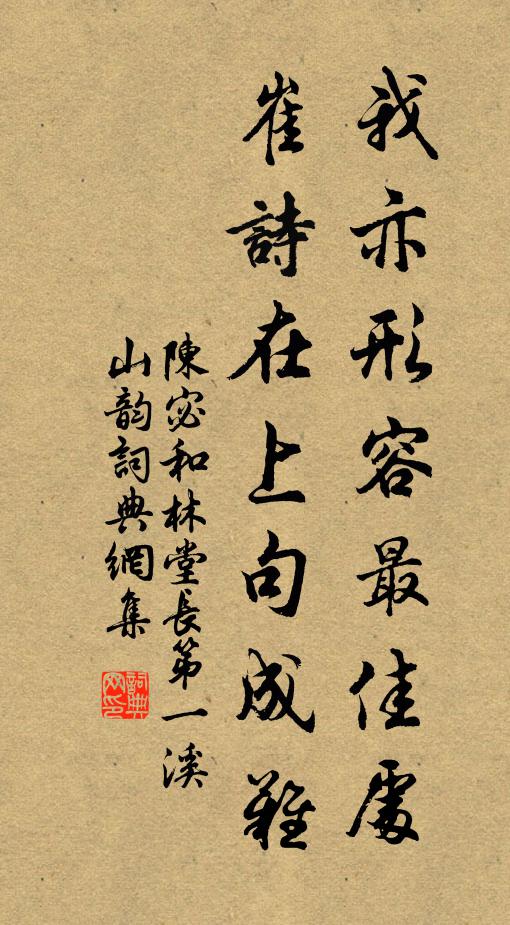 我亦形容最佳處
崔詩在上句成難
陳宓和林堂長第一溪
山韵詞典網集
詞典網印